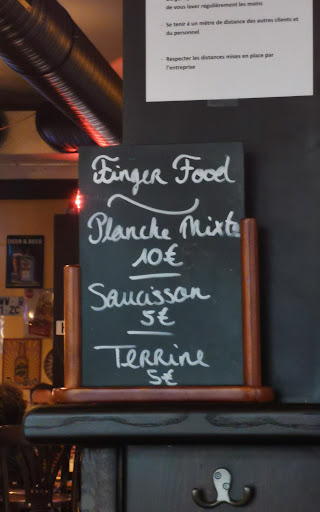 de vous laver régulièrement les mains
Se tenir à un mètre de distance des autres clients et
du personnel
Respecter les distances mises en place par
l'entreprise
Finger Food
Planche Mixte
10€
Saucisson
5€
Terrine
5€
BEER & BEER